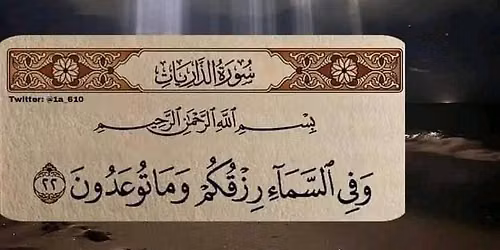 سُورَةُ الذَّارِيَاتِ
Twitter: @1a_610
بِسْمِ ٱللَّهِ ٱلرَّحْمَٰنِ ٱلرَّحِيمِ
وَفِي ٱلسَّمَآءِ رِزْقُكُمْ وَمَا تُوعَدُونَ ٢٢